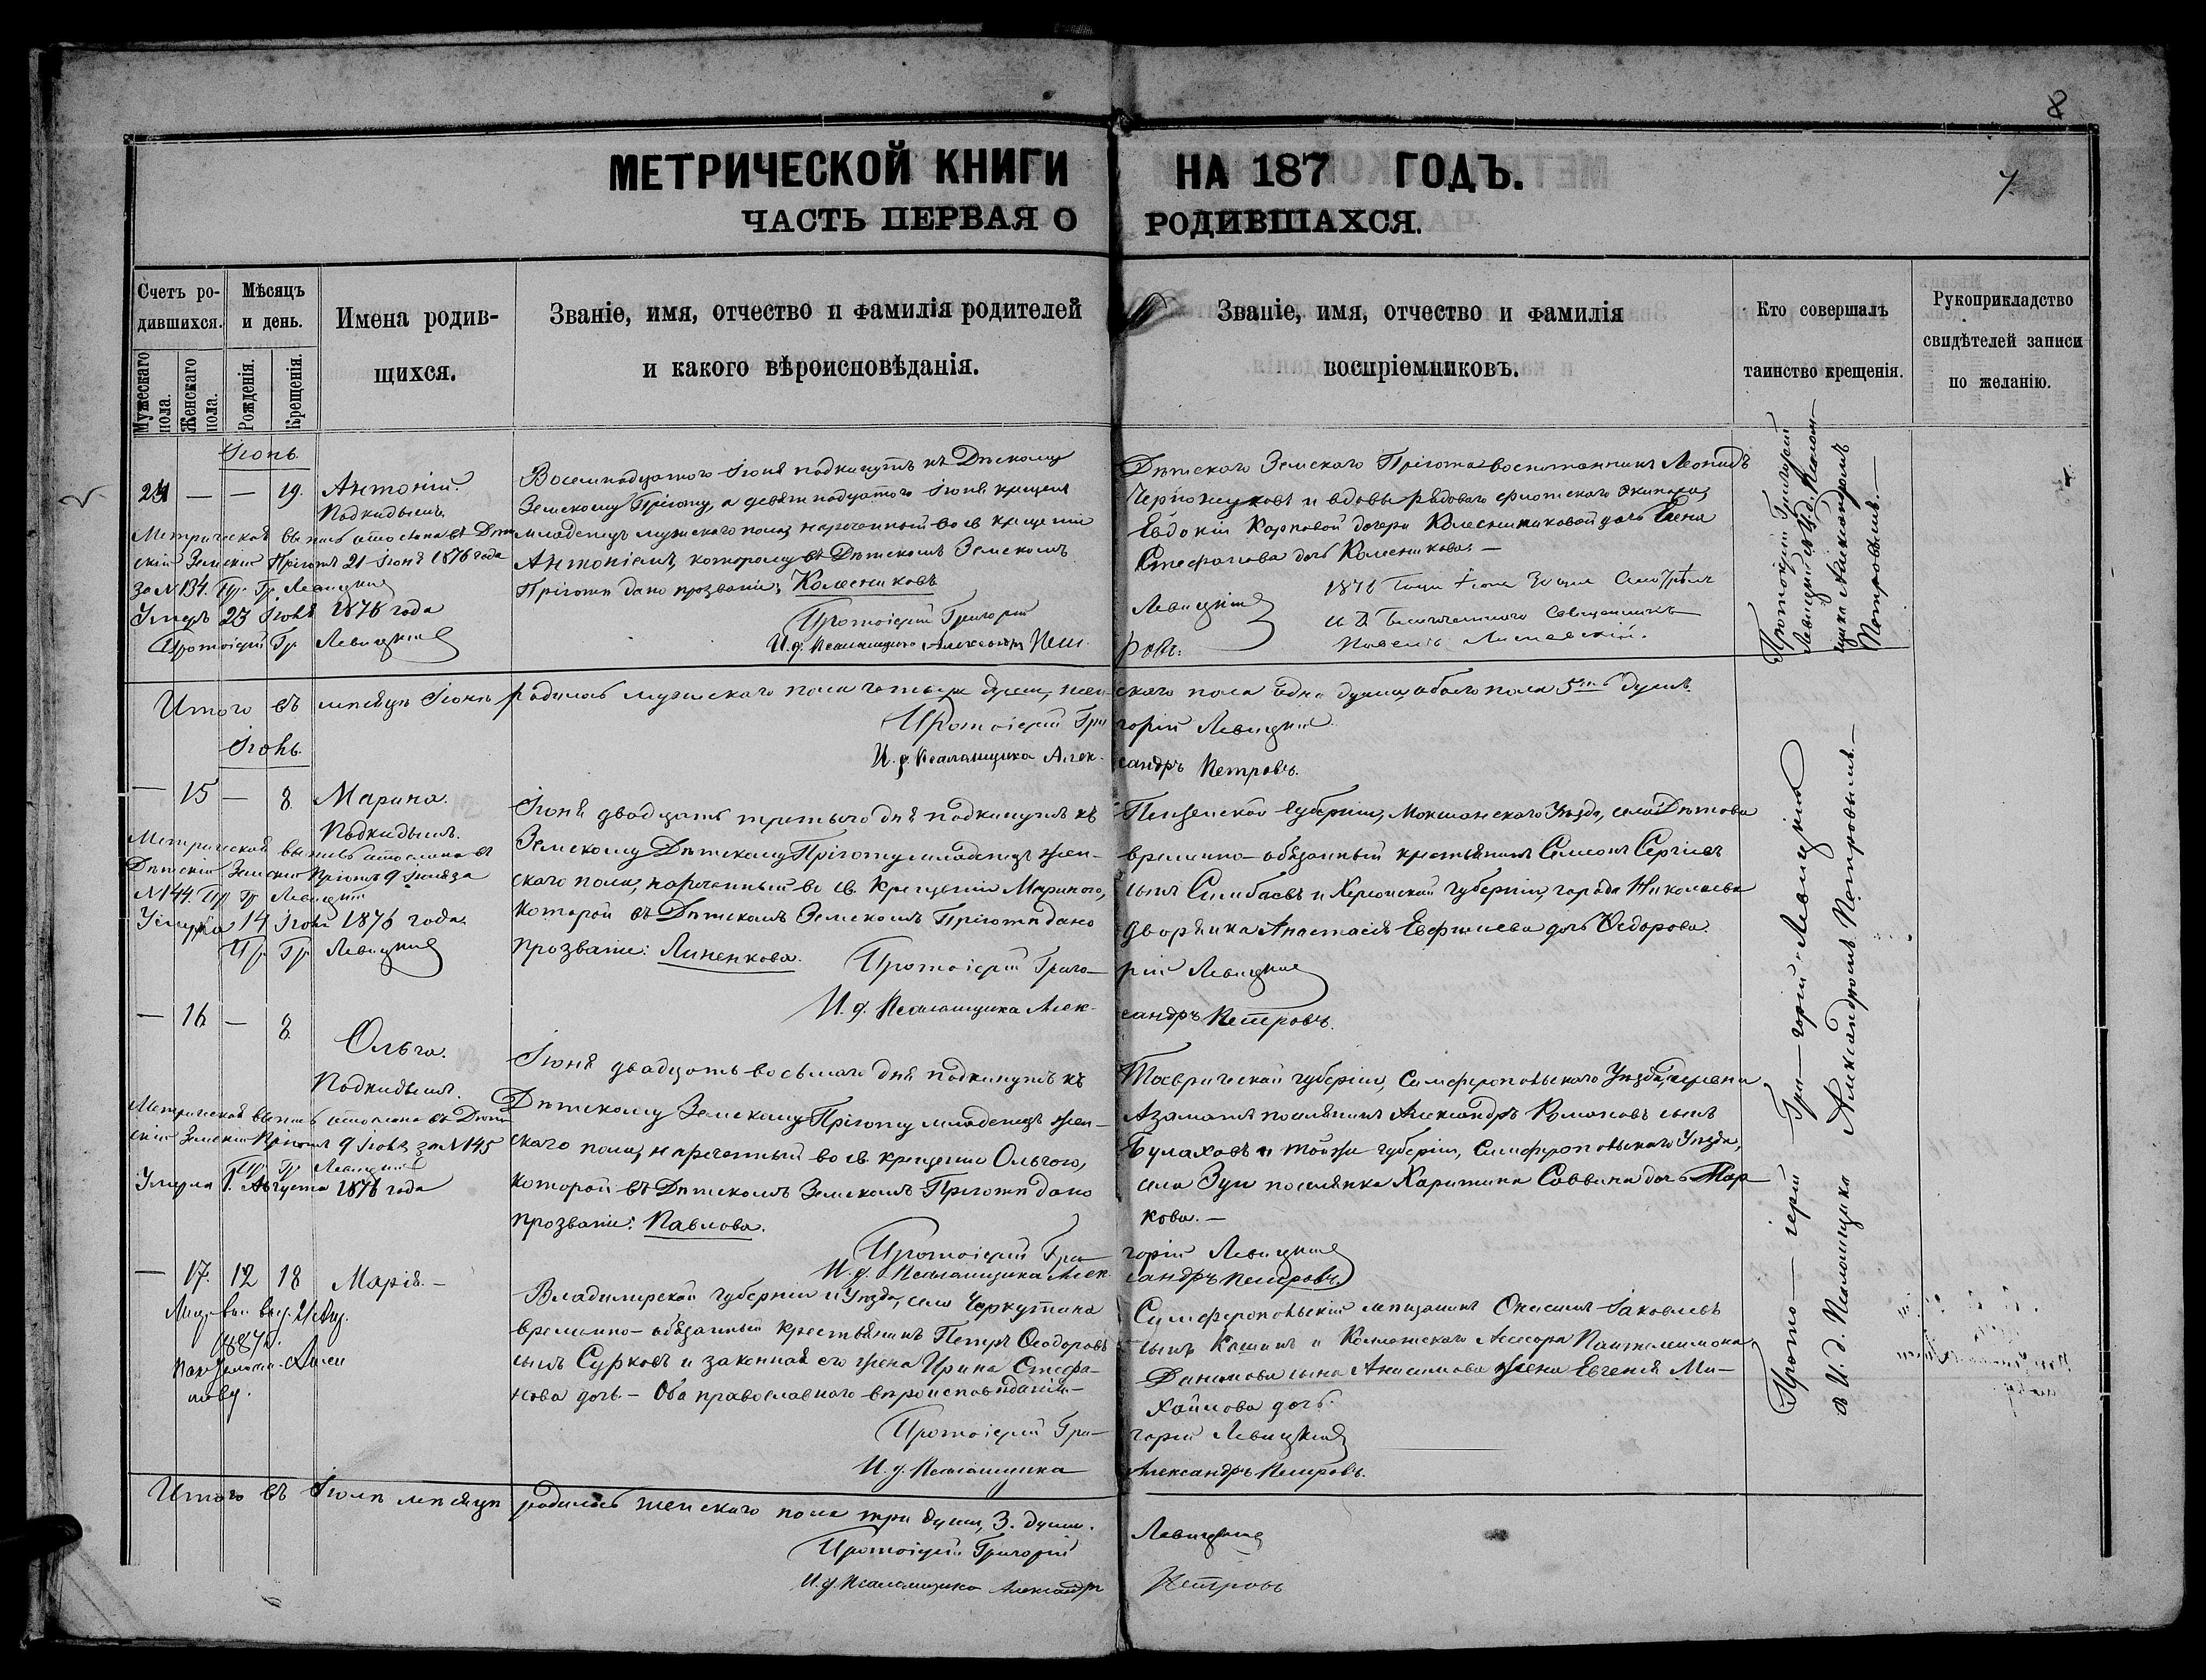 8
МЕТРИЧЕСКОЙ КНИГИ НА 187 ГОДЪ.
7.
ЧАСТЬ ПЕРВАЯ О РОДИВШАХСЯ.
Счетъ ро-
дившихся.
Мужескаго пола.
Женскаго пола.
Мѣсяцъ
и день.
Рожденія.
Крещенія.
Имена родив-
щихся.
Званіе, имя, отчество и фамилія родителей
и какого вѣроисповѣданія.
Званіе, имя, отчество и фамилія
воспріемниковъ.
Кто совершалъ
таинство крещенія.
Рукоприкладство
свидѣтелей записи
по желанію.
Іюнь.
— — 19. Антоній.
Подкидышъ.
Метрическая выпись отослана въ Дѣт
скій Земскій Пріютъ 21 Іюня 1876 года
за N 134. Пр. Гр. Левицкій
Умеръ 23 Іюня 1876 года
Протоіерей Гр. Левицкій
Восемнадцатого Іюня подкинутъ къ Дѣтскому
Земскому Пріюту, а девятнадцатого Іюня крещенъ
младенецъ мужескаго пола, нареченный во св. крещеніи
Антоніемъ, которому въ Дѣтскомъ Земскомъ
Пріютѣ дано прозваніе: Колесниковъ
Протоіерей Григорій
И. д. Псаломщика Александръ Пет
Дѣтскаго Земскаго Пріюта воспитанникъ Леонидъ
и вдовы рядоваго флотскаго экипажа
Евдокіи Карповой дочери Колесниковой дочь Елена
Стефанова дочь Колесникова. —
Левицкій
ровъ.
1876 Года
И. Д. Благочиннаго Священникъ
Протоіерей Григорій
Левицкій съ И. д. Псалом-
щика Александромъ
Петровымъ. —
Итого въ мѣсяцѣ Іюнѣ родилось мужескаго пола четыре души, жен-скаго пола одна душа, обоего пола 5ть душъ.
Протоіерей Гри горій Левицкій
И. д. Псаломщика Алек- сандръ Петровъ.
Іюль.
— 15 — 8 Марина.
Подкидышъ.
Метрическая выпись отослана въ
Дѣтскій Земскій Пріютъ 9 Іюля за
N 144. Пр. Гр. Левицкій
Умерла 14 Іюля 1876 года.
Пр. Гр. Левицкій
Іюня двадцать третьяго дня подкинутъ къ
Земскому Дѣтскому Пріюту младенецъ жен-
скаго пола, нареченный во св. Крещеніи Мариною,
которой въ Дѣтскомъ Земскомъ Пріютѣ дано
прозваніе: Линенкова. Протоіерей Григо-
И. д. Псаломщика Алек-
Пензенской Губерніи, Мокшанскаго Уѣзда, села
временно-обязанный крестьянинъ Симонъ Сергіевъ
сынъ Симбаевъ и Херсонской Губерніи, города Николаева
дворянка Анастасія Евфиміева дочь Ѳедорова.
рій Левицкій
сандръ Петровъ.
— 16 — 8. Ольга.
Подкидышъ.
Метрическая выпись отослана въ Дѣт
скій Земскій Пріютъ 9 Іюля за N 145
Пр. Гр. Левицкій
Умерла 1. Августа 1876 года
Іюня двадцать восьмаго дня подкинутъ къ
Дѣтскому Земскому Пріюту младенецъ жен-
скаго пола, нареченный во св. крещеніи Ольгою,
которой въ Дѣтскомъ Земскомъ Пріютѣ дано
прозваніе: Павлова.
Протоіерей Гри-
И. д. Псаломщика Алек
Таврической губерніи, Симферопольскаго Уѣзда, деревни
Азаматъ поселянинъ Александръ Романовъ сынъ
Булаховъ и той же губерніи, Симферопольскаго Уѣзда,
села Зуи поселянка Харитина Саввина дочь Мар
кова. —
горій Левицкій
сандръ Петровъ
— 17. 12 18 Марія. —
Владимирской губерніи и Уѣзда, села Черкутина
временно-обязанный крестьянинъ Петръ Ѳеодоровъ
сынъ Сурковъ и законная его жена Ирина Стефа-
нова дочь. — Оба православнаго вѣроисповѣданія. —
Протоіерей Гри-
И. д. Псаломщика
Симферопольскій мѣщанинъ Онисимъ Іаковлевъ
сынъ Кашинъ и Коллежскаго Асессора Пантелеимона
Данилова сына Анисимова жена Евгенія Ми-
хайлова дочь.
горій Левицкій
Александръ Петровъ.
Прото— іерей Гри— горій Левицкій
съ И. д. Псаломщика Александромъ Петровымъ. —
Итого въ Іюлѣ мѣсяцѣ родилось женскаго пола три души, 3. души.
Протоіерей Григорій Левицкій
И. д. Псаломщика Александръ Петровъ